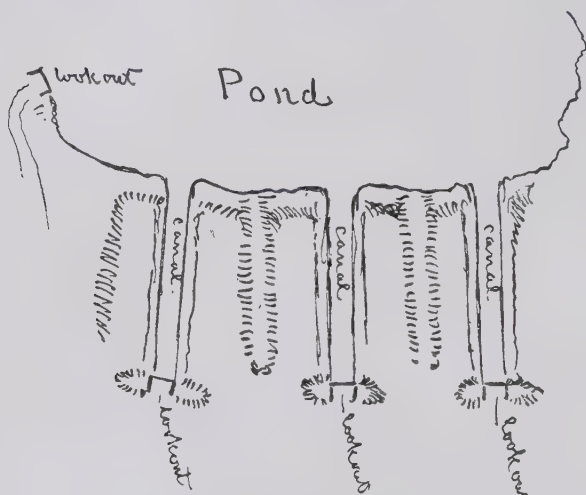 lookout
Pond
canal.
canal
canal.
lookout
lookout
lookout